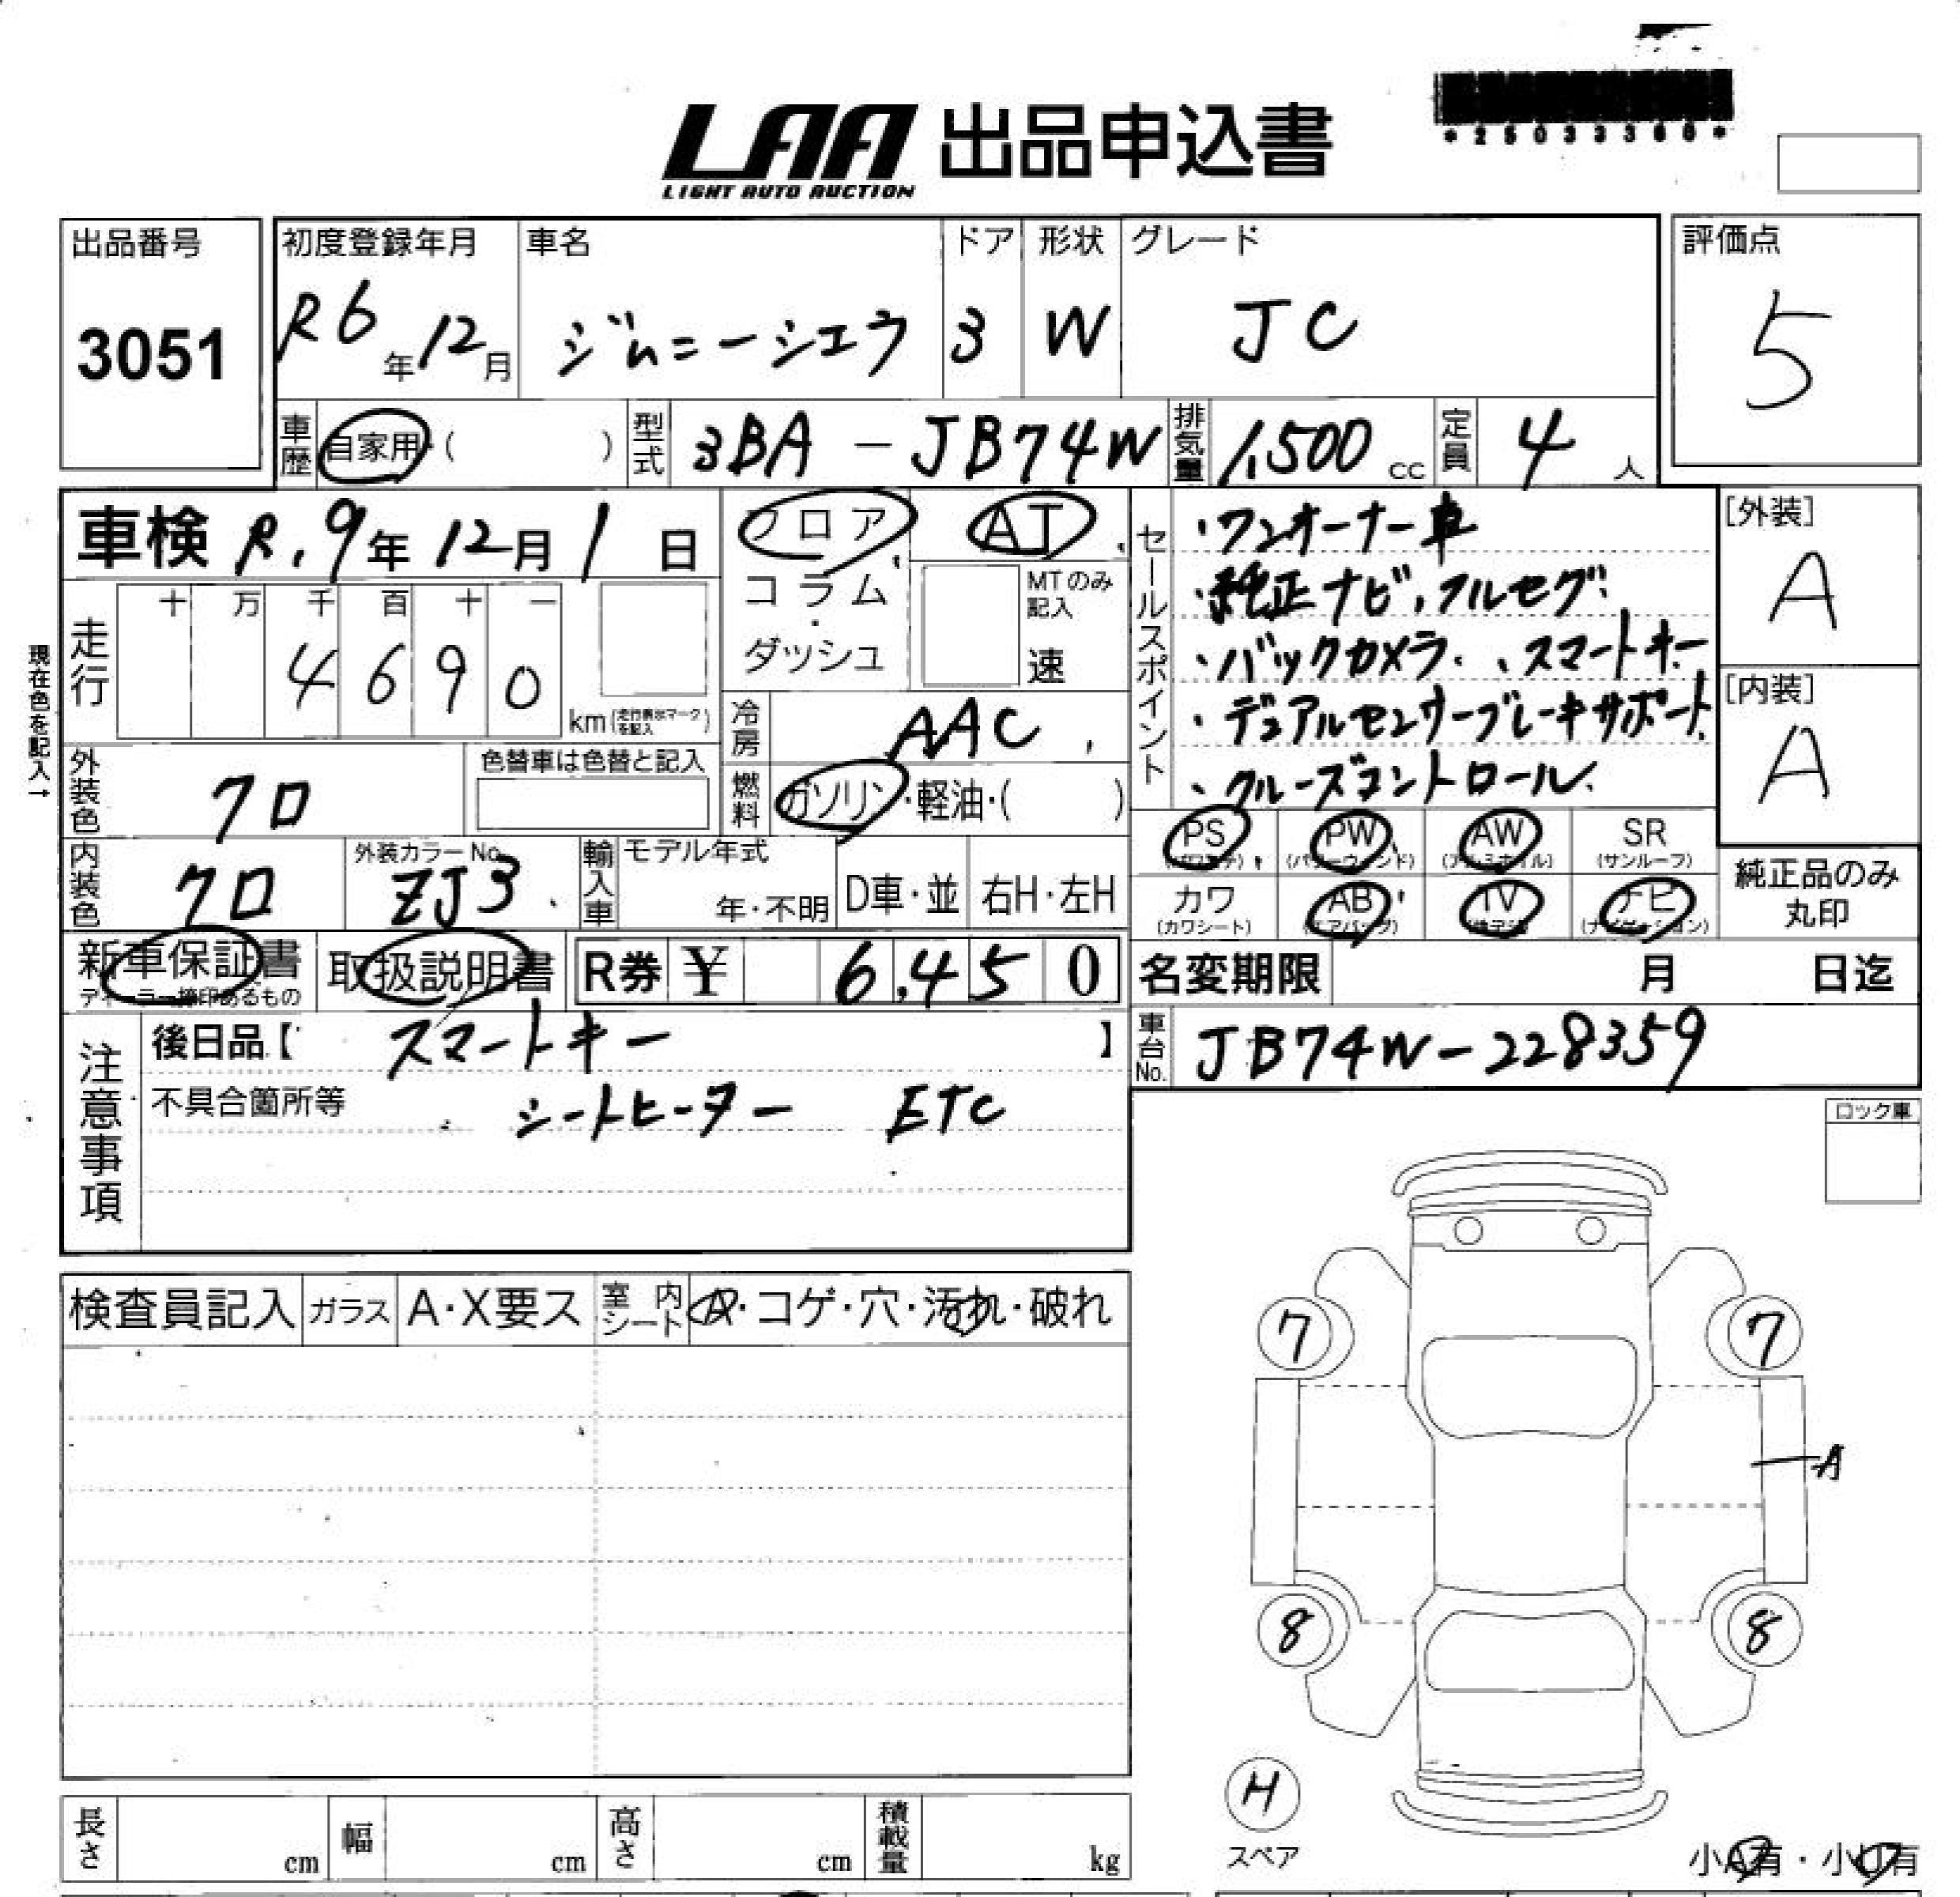 LAA 出品申込書
LIGHT AUTO AUCTION
出品番号 初度登録年月 車名 ドア 形状 グレード 評価点
3051 R6年12月 ジムニーシエラ 3 W JC 5
車歴 自家用・( ) 型式 3BA-JB74W 排気量 1,500cc 定員 4人
車検 R.9年12月1日 フロア AT
コラム・ダッシュ MTのみ記入 速
走行 十 万 千 百 十 一
4690 km(走行表示マークを記入)
現在色を記入→
冷房 AAC
外装色 クロ 色替車は色替と記入 燃料 ガソリン・軽油・( )
内装色 クロ 外装カラーNo. ZJ3 輸入車 モデル年式 年・不明 D車・並 右H・左H
セールスポイント
・ワンオーナー車
・純正ナビ,フルセグ
・バックカメラ、スマートキー
・デュアルセンサーブレーキサポート
・クルーズコントロール
[外装]
A
[内装]
A
PS PW AW SR
(パワステ) (パワーウィンド) (アルミホイル) (サンルーフ)
カワ AB TV ナビ
(カワシート) (エアバッグ) (ナビゲーション)
純正品のみ
丸印
新車保証書 取扱説明書 R券 ¥ 6,450
ディーラー捺印あるもの
名変期限 月 日迄
車台No. JB74W-228359
注意事項
後日品【 スマートキー 】
不具合箇所等 シートヒーター ETC
ロック車
検査員記入 ガラス A・X要ス 室内シート A・コゲ・穴・汚れ・破れ
7 7
A
8 8
H
スペア
小A有・小U有
長さ cm 幅 cm 高さ cm 積載量 kg